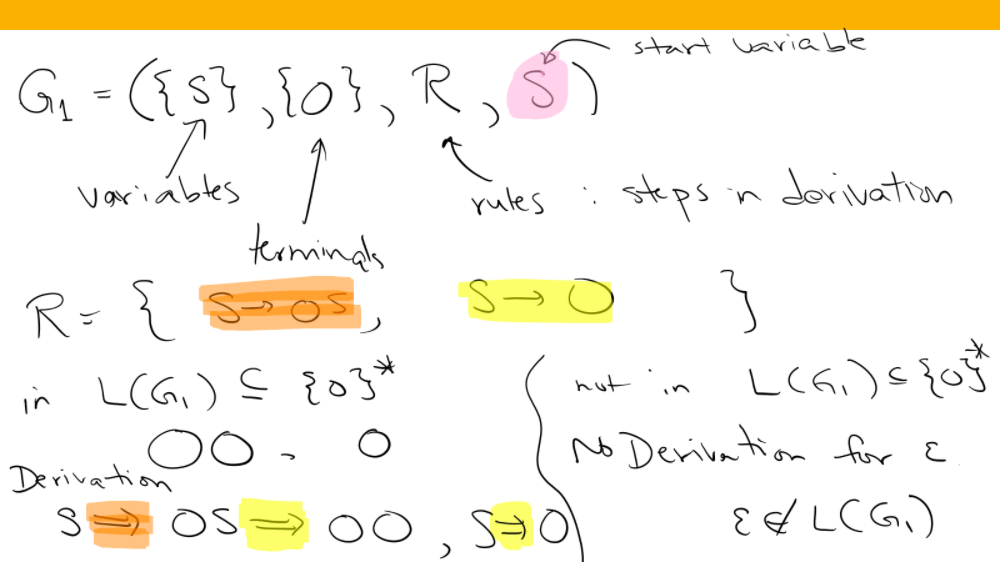 start variable
G₁ = ({S}, {0}, R, S)
variables
rules : steps in derivation
terminals
R = { S → 0S, S → 0 }
in L(G₁) ⊆ {0}*
00, 0
Derivation
S ⇒ 0S ⇒ 00, S ⇒ 0
not in L(G₁) ⊆ {0}*
No Derivation for ε
ε ∉ L(G₁)